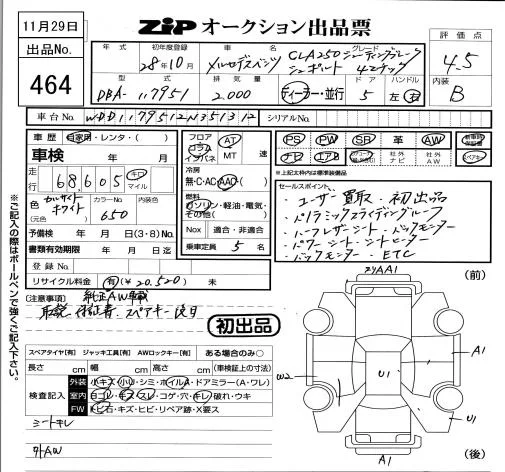 11月29日
ZIP オークション出品票
出品No.
464
年式
初年度登録
28年10月
車名
メルセデスベンツ
グレード
CLA250シューティングブレーク
シュポルト 4マチック
評価点
4.5
内装
B
型式
DBA-117951
排気量
2.000
ディーラー・並行
ドア
5
ハンドル
左・右
車台No.
WDD1179512N351312
シリアルNo.
車歴 自家用・レンタ・( )
車検 年 月
走行 68,605 キロ マイル
色(元色) カルサイトホワイト
カラーNo. 650
内装色
予備検 年 月 日(3・8)No.
書類有効期限 年 月 日迄
登録No.
リサイクル料金 有(¥20.520)
フロア コラム インパネ
AT MT 速
冷房 無・C・AC・AAC・( )
燃料 ガソリン・軽油・電気・その他( )
Nox 適合・非適合
乗車定員 5 名
PS PW SR 革 AW
ナビ エアB 社外ナビ 社外AW
新車時保証書
スペアキー
※上記太枠内は標準装備品
セールスポイント
・ユーザー買取・初出品
・パノラミックスライディングルーフ
・ハーフレザーシート・バックモニター
・パワーシート・シートヒーター
・バックモニター・ETC
[注意事項] 純正AW車載
取説・保証書・スペアキー後日
初出品
スペアタイヤ[有] ジャッキ工具[有] AWロックキー[有] ある場合のみ○
長さ cm 幅 cm 高さ cm (車検証上の寸法)
検査記入
外装 小キズ・小U・シミ・ホイルA・ドアミラー(A・ワレ)
室内 ヨゴレ・キズ・スレ・コゲ・穴・キレ・破れ・ウキ
FW トビ石・キズ・ヒビ・リペア跡・X要ス
シートキレ
外AW
※ご記入の際はボールペンで強くご記入下さい。
(前)
A1
A1
W2
U1
U1
A1
(後)